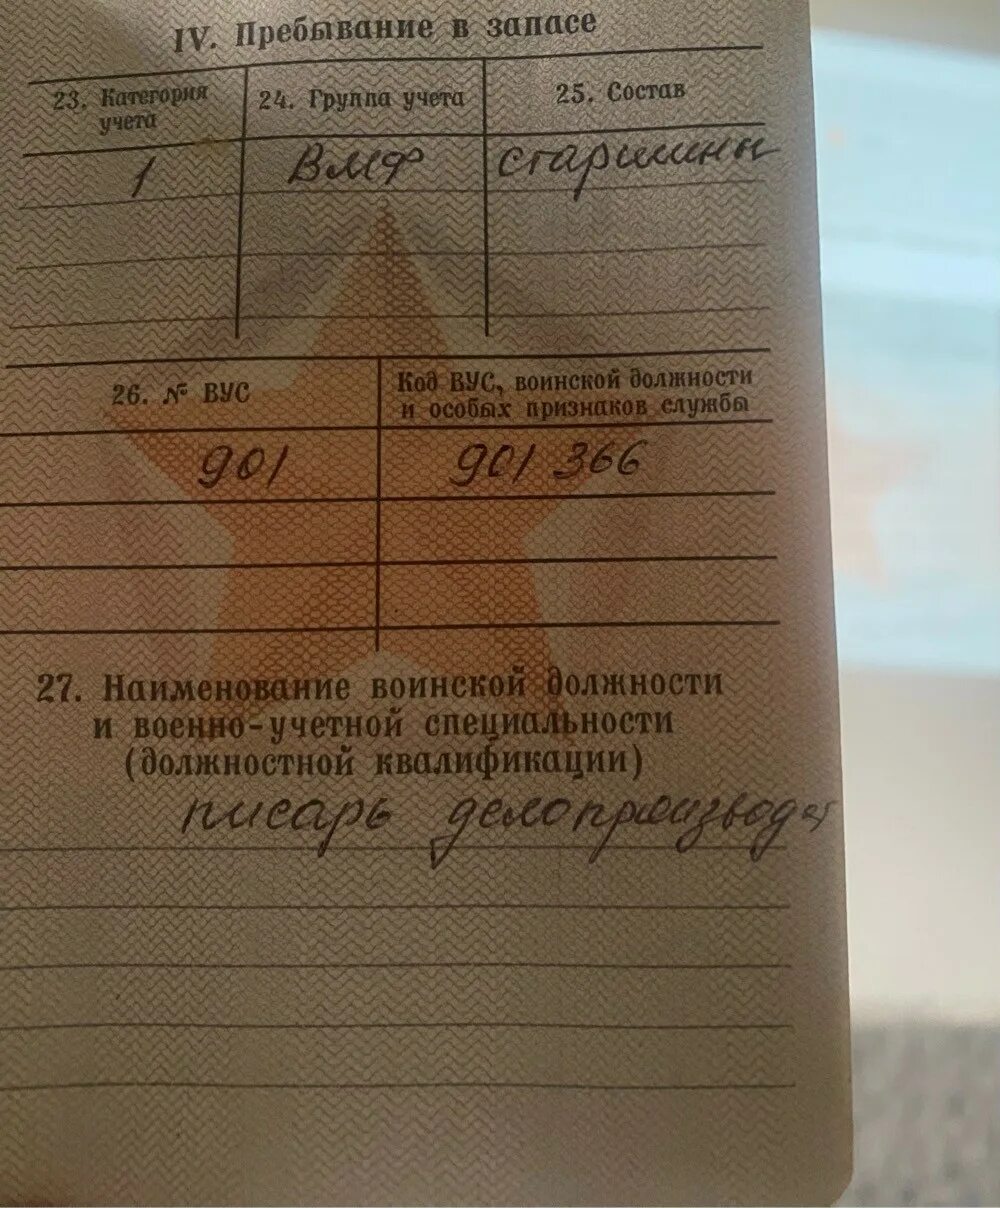 IV. Пребывание в запасе
23. Категория учета
24. Группа учета
25. Состав
1
ВМФ
старшины
26. № ВУС
Код ВУС, воинской должности
и особых признаков службы
901
901 366
27. Наименование воинской должности
и военно-учетной специальности
(должностной квалификации)
писарь